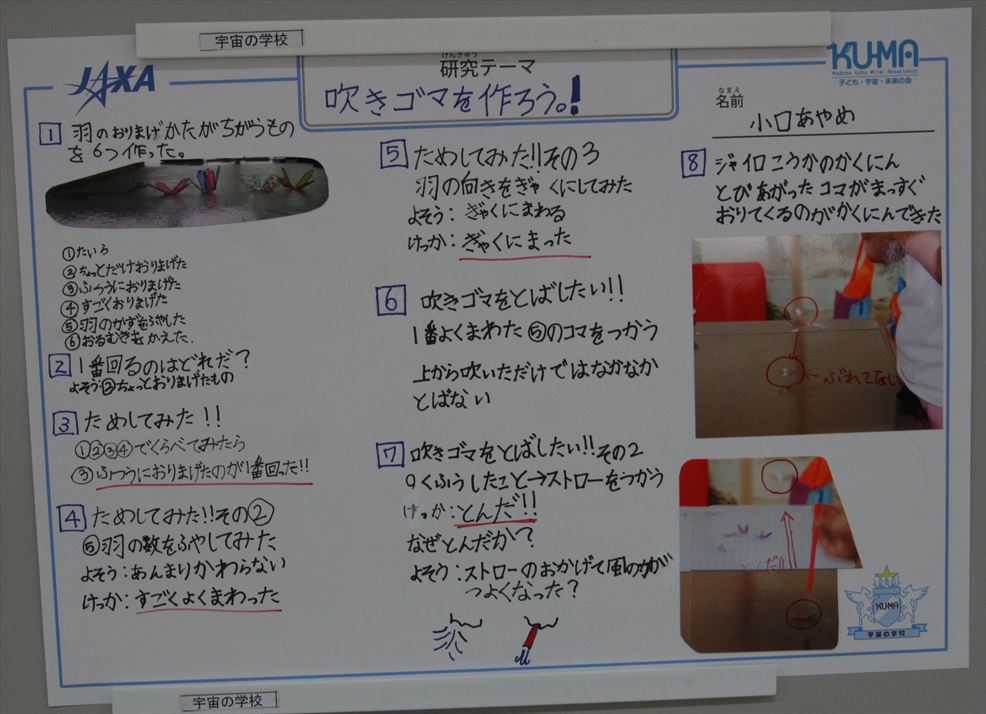 宇宙の学校
JAXA
けんきゅう
研究テーマ
吹きゴマを作ろう。!
KUMA
Kodomo Uchu Mirai Association
子ども・宇宙・未来の会
なまえ
名前
小口あやめ
1 羽のおりまげかたがちがうもの
を6つ作った。
①たいら
②ちょっとだけおりまげた
③ふつうにおりまげた
④すごくおりまげた
⑤羽のかずをふやした
⑥おるむきをかえた.
2 1番回るのはどれだ?
よそう②ちょっとおりまげたもの
3 ためしてみた!!
①②③④でくらべてみたら
③ふつうにおりまげたのが1番回った!!
4 ためしてみた!!その②
⑤羽の数をふやしてみた
よそう:あんまりかわらない
けっか:すごくよくまわった
5 ためしてみた!!その3
羽の向きをぎゃくにしてみた
よそう:ぎゃくにまわる
けっか:ぎゃくにまった
6 吹きゴマをとばしたい!!
1番よくまわた⑤のコマをつかう
上から吹いただけではなかなか
とばない
7 吹きゴマをとばしたい!!その2
くふうしたこと→ストローをつかう
けっか:とんだ!!
なぜとんだか?
よそう:ストローのおかげで風の力が
つよくなった?
8 ジャイロこうかのかくにん
とびあがったコマがまっすぐ
おりてくるのがかくにんできた
←ぶれてない
とんだ!!
KUMA
宇宙の学校
宇宙の学校